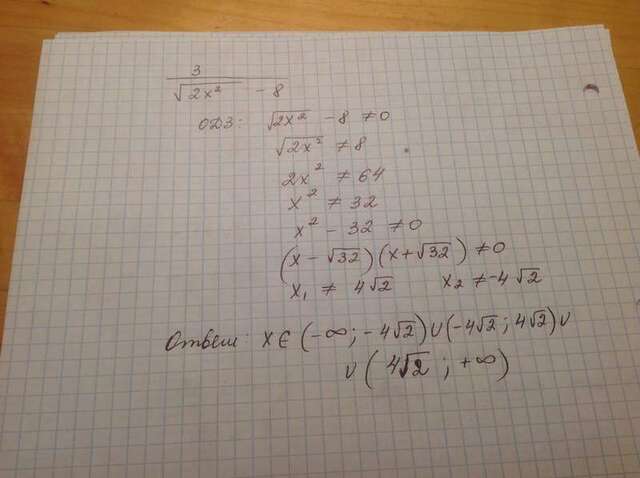 3
√2x² - 8
ОДЗ: √2x² - 8 ≠ 0
√2x² ≠ 8
2x² ≠ 64
x² ≠ 32
x² - 32 ≠ 0
(x - √32)(x + √32) ≠ 0
x₁ ≠ 4√2 x₂ ≠ -4√2
Ответ: x ∈ (-∞; -4√2) ∪ (-4√2; 4√2) ∪
∪ (4√2; +∞)